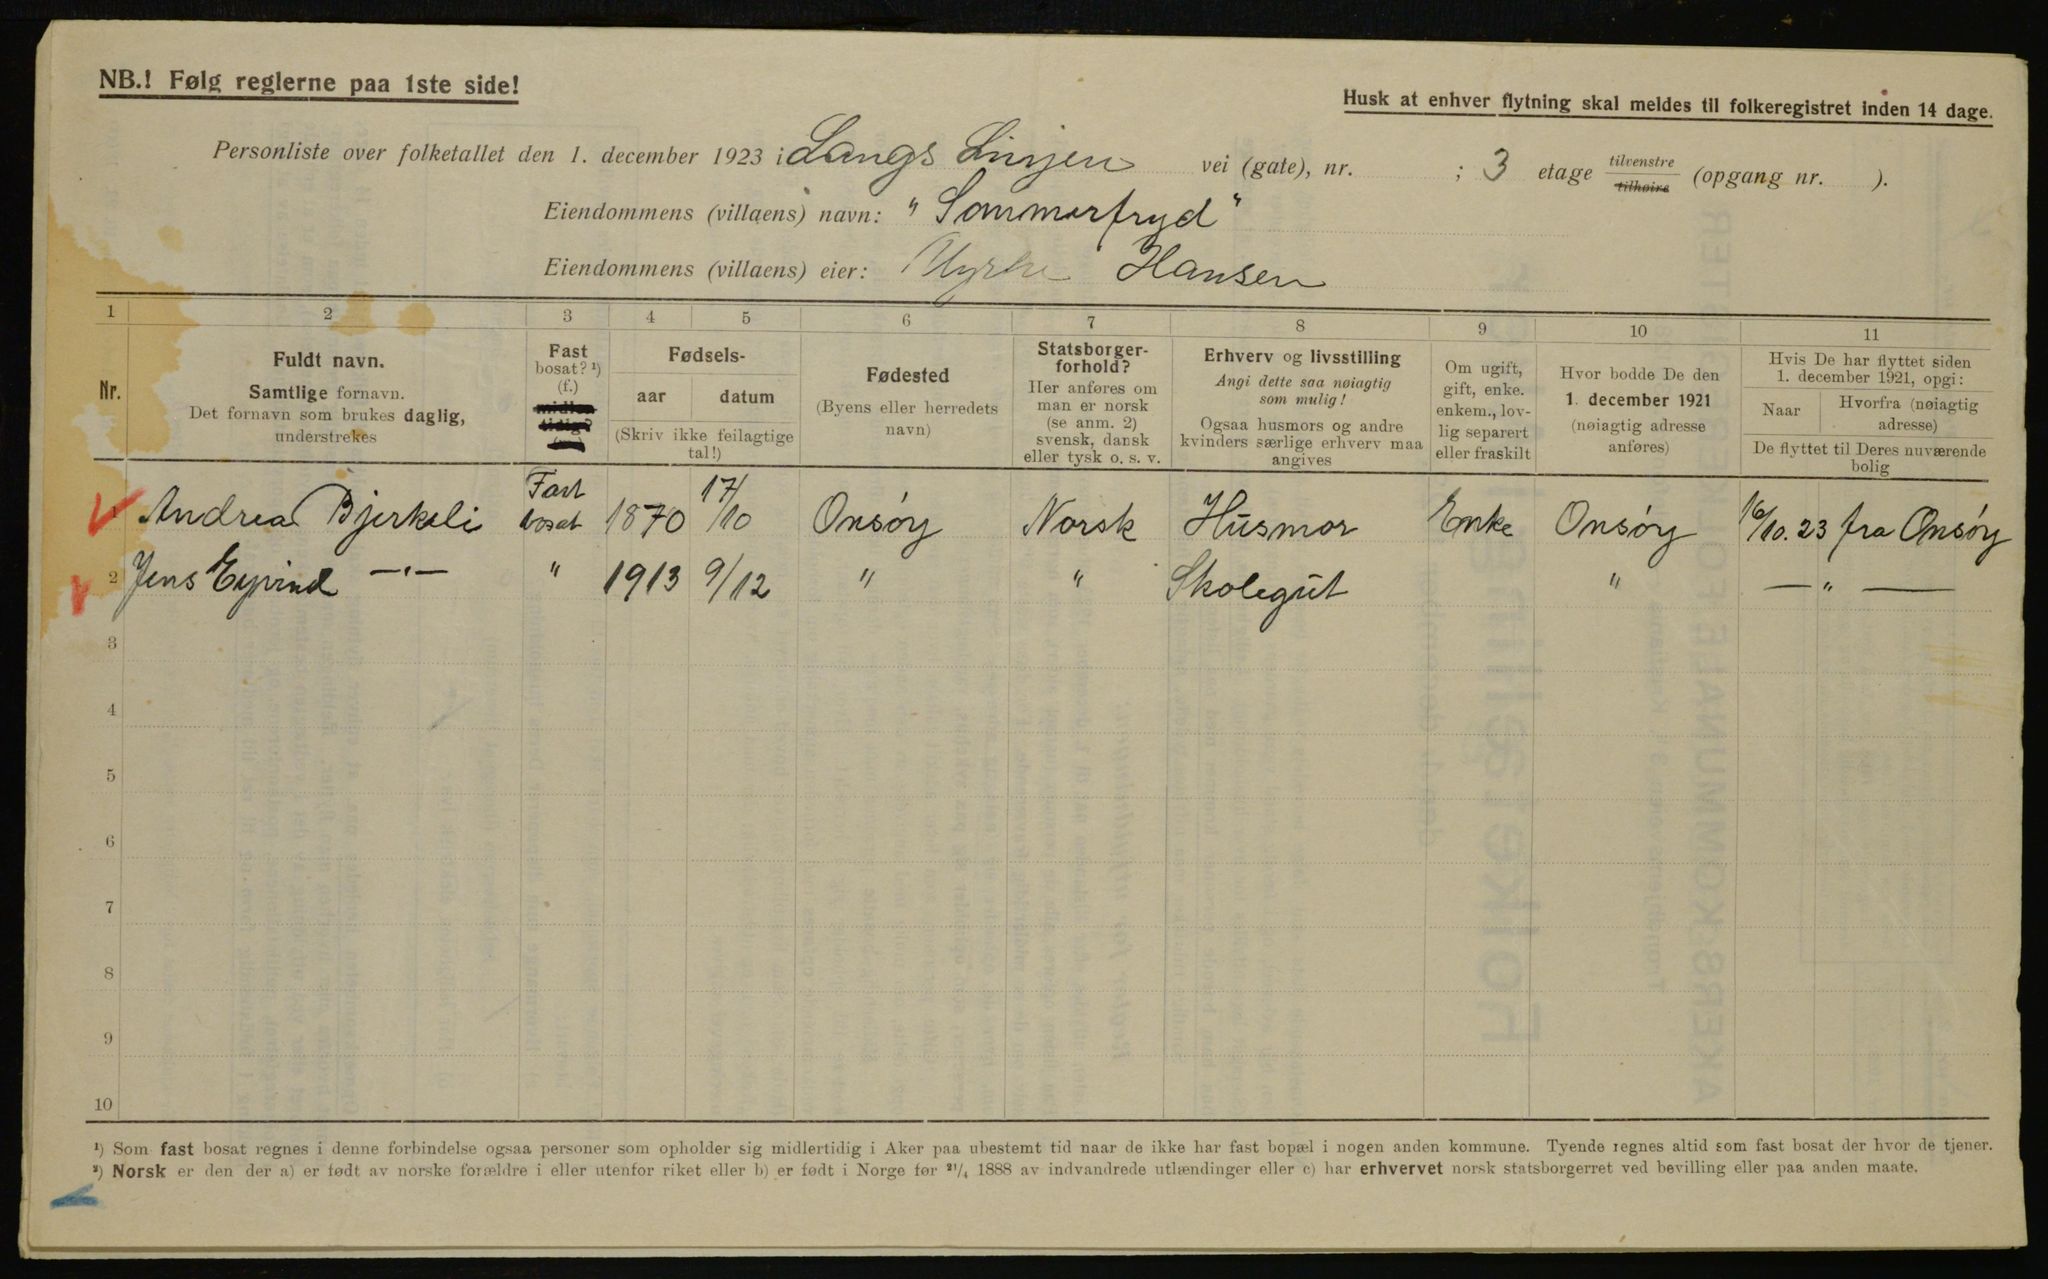 NB.! Følg reglerne paa 1ste side!
Husk at enhver flytning skal meldes til folkeregistret inden 14 dage.
Personliste over folketallet den 1. december 1923 i Langs Linjen vei (gate), nr. ; 3 etage tilvenstre tilhøire (opgang nr. ).
Eiendommens (villaens) navn: "Sommerfryd"
Eiendommens (villaens) eier: Hansen
1 2 3 4 5 6 7 8 9 10 11
Nr.
Fuldt navn.
Samtlige fornavn.
Det fornavn som brukes daglig,
understrekes
Fast
bosat? ¹)
(f.)
midler-
tidig?
(m.)
Fødsels-
aar datum
(Skriv ikke feilagtige
tal!)
Fødested
(Byens eller herredets
navn)
Statsborger-
forhold?
Her anføres om
man er norsk
(se anm. 2)
svensk, dansk
eller tysk o. s. v.
Erhverv og livsstilling
Angi dette saa nøiagtig
som mulig!
Ogsaa husmors og andre
kvinders særlige erhverv maa
angives
Om ugift,
gift, enke.
enkem., lov-
lig separert
eller fraskilt
Hvor bodde De den
1. december 1921
(nøiagtig adresse
anføres)
Hvis De har flyttet siden
1. december 1921, opgi:
Naar
Hvorfra (nøiagtig
adresse)
De flyttet til Deres nuværende
bolig
1 Andrea Bjerkeli Fast bosat 1870 17/10 Onsøy Norsk Husmor Enke Onsøy 16/10.23 fra Onsøy
2 Jens Eyvind —"— " 1913 9/12 " " Skolegut " — " —
3
4
5
6
7
8
9
10
¹) Som fast bosat regnes i denne forbindelse ogsaa personer som opholder sig midlertidig i Aker paa ubestemt tid naar de ikke har fast bopæl i nogen anden kommune. Tyende regnes altid som fast bosat der hvor de tjener.
²) Norsk er den der a) er født av norske forældre i eller utenfor riket eller b) er født i Norge før 21/4 1888 av indvandrede utlændinger eller c) har erhvervet norsk statsborgerret ved bevilling eller paa anden maate.